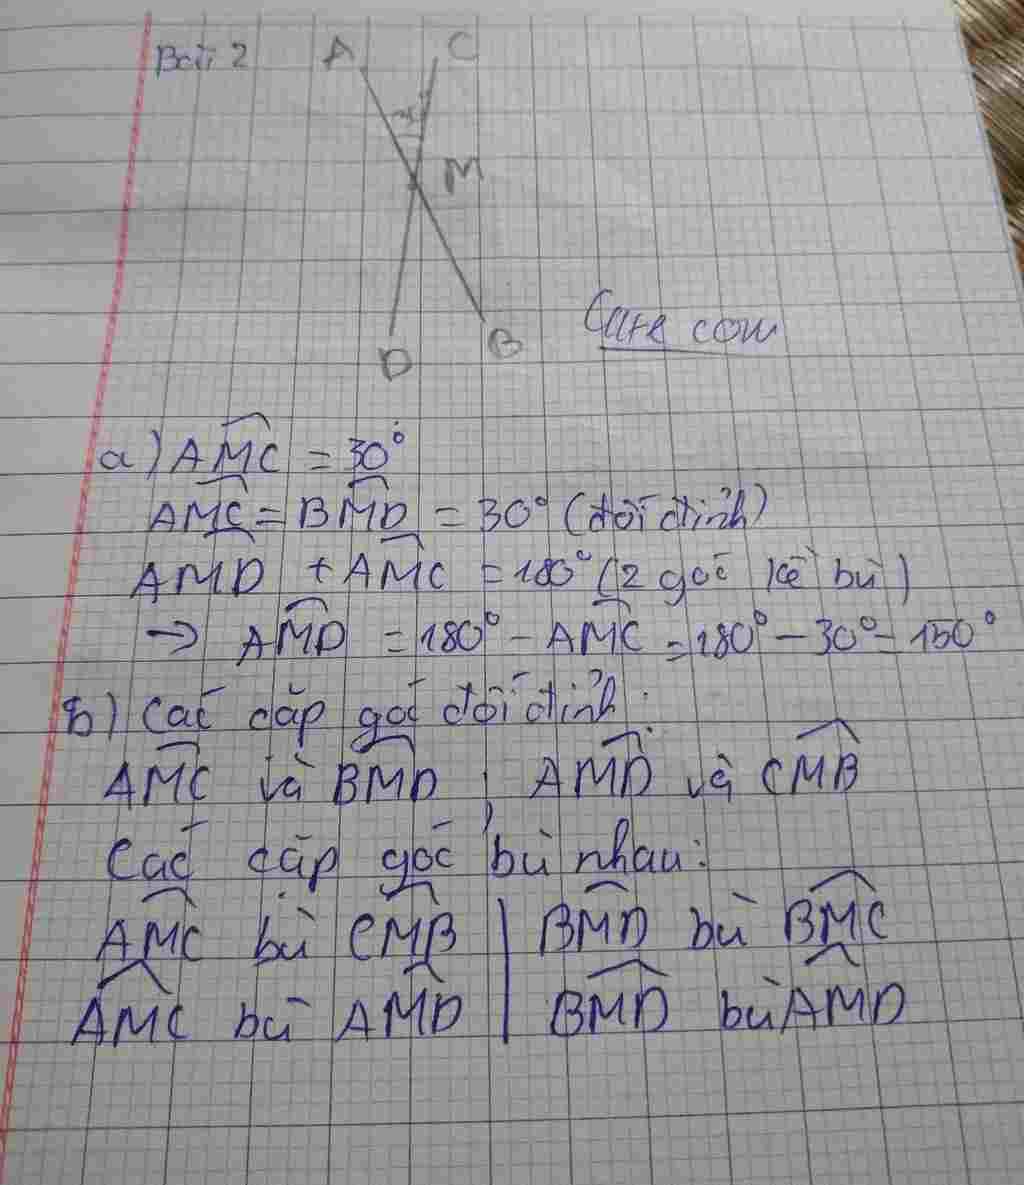 Bài 2
A C
M
D B
Care com
a) AMC = 30°
AMC = BMD = 30° (đối đỉnh)
AMD + AMC = 180° (2 góc kề bù)
→ AMD = 180° - AMC = 180° - 30° = 150°
b) Các cặp góc đối đỉnh:
AMC và BMD ; AMD và CMB
Các cặp góc bù nhau:
AMC bù CMB | BMD bù BMC
AMC bù AMD | BMD bù AMD